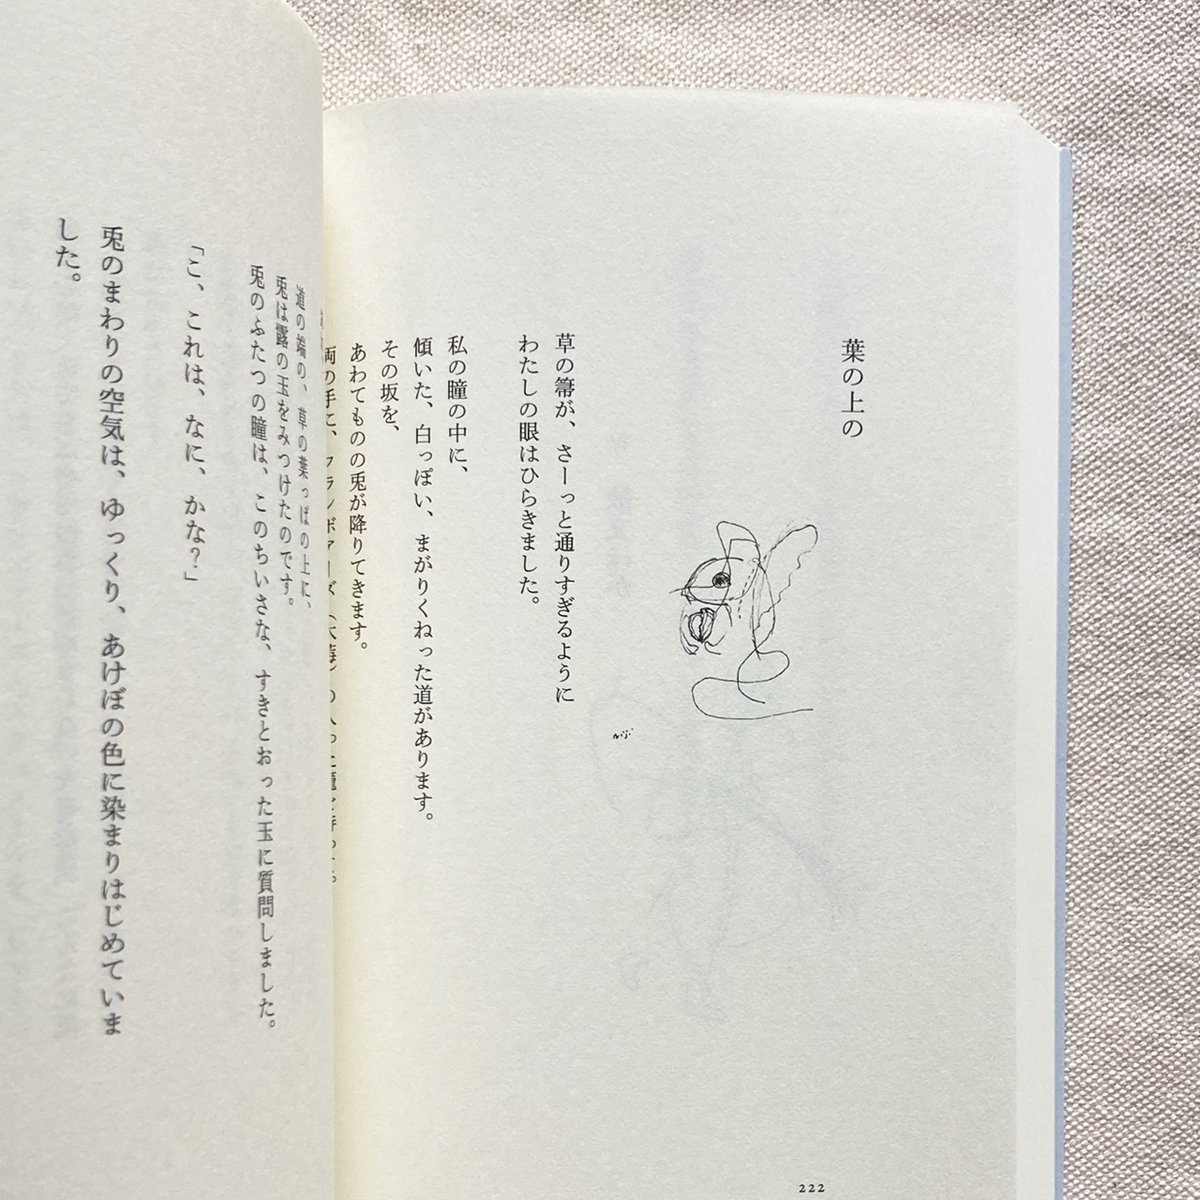 葉の上の
草の箒が、さーっと通りすぎるように
わたしの眼はひらきました。
私の瞳の中に、
傾いた、白っぽい、まがりくねった道があります。
その坂を、
あわてものの兎が降りてきます。
両の手に、フランボアーズ
222
道の端の、草の葉っぱの上に、
兎は露の玉をみつけたのです。
兎のふたつの瞳は、このちいさな、すきとおった玉に質問しました。
「こ、これは、なに、かな?」
兎のまわりの空気は、ゆっくり、あけぼの色に染まりはじめていま
した。